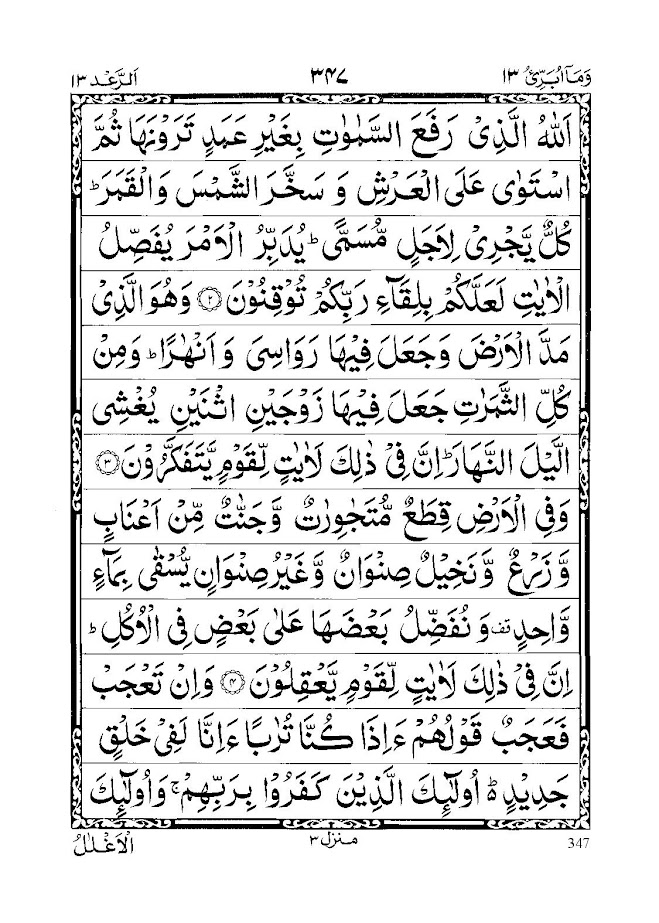 وَمَآ اُبَرِّئُ ١٣ ٣٤٧ اَلرَّعْد ١٣
اَللّٰهُ الَّذِیْ رَفَعَ السَّمٰوٰتِ بِغَیْرِ عَمَدٍ تَرَوْنَهَا ثُمَّ
اسْتَوٰی عَلَی الْعَرْشِ وَ سَخَّرَ الشَّمْسَ وَالْقَمَرَ ؕ
كُلٌّ یَّجْرِیْ لِاَجَلٍ مُّسَمًّی ؕ یُدَبِّرُ الْاَمْرَ یُفَصِّلُ
الْاٰیٰتِ لَعَلَّكُمْ بِلِقَآءِ رَبِّكُمْ تُوْقِنُوْنَ ۝۲ وَهُوَ الَّذِیْ
مَدَّ الْاَرْضَ وَجَعَلَ فِیْهَا رَوَاسِیَ وَ اَنْهٰرًا ؕ وَمِنْ
كُلِّ الثَّمَرٰتِ جَعَلَ فِیْهَا زَوْجَیْنِ اثْنَیْنِ یُغْشِی
الَّیْلَ النَّهَارَ ؕ اِنَّ فِیْ ذٰلِكَ لَاٰیٰتٍ لِّقَوْمٍ یَّتَفَكَّرُوْنَ ۝۳
وَفِی الْاَرْضِ قِطَعٌ مُّتَجٰوِرٰتٌ وَّجَنّٰتٌ مِّنْ اَعْنَابٍ
وَّزَرْعٌ وَّنَخِیْلٌ صِنْوَانٌ وَّغَیْرُ صِنْوَانٍ یُّسْقٰی بِمَآءٍ
وَّاحِدٍ قف وَ نُفَضِّلُ بَعْضَهَا عَلٰی بَعْضٍ فِی الْاُكُلِ ؕ
اِنَّ فِیْ ذٰلِكَ لَاٰیٰتٍ لِّقَوْمٍ یَّعْقِلُوْنَ ۝۴ وَاِنْ تَعْجَبْ
فَعَجَبٌ قَوْلُهُمْ ءَاِذَا كُنَّا تُرٰبًا ءَاِنَّا لَفِیْ خَلْقٍ
جَدِیْدٍ ؕ۬ اُولٰٓئِكَ الَّذِیْنَ كَفَرُوْا بِرَبِّهِمْ ۚ وَاُولٰٓئِكَ
347 منزل ٣ الْاَغْلٰلُ